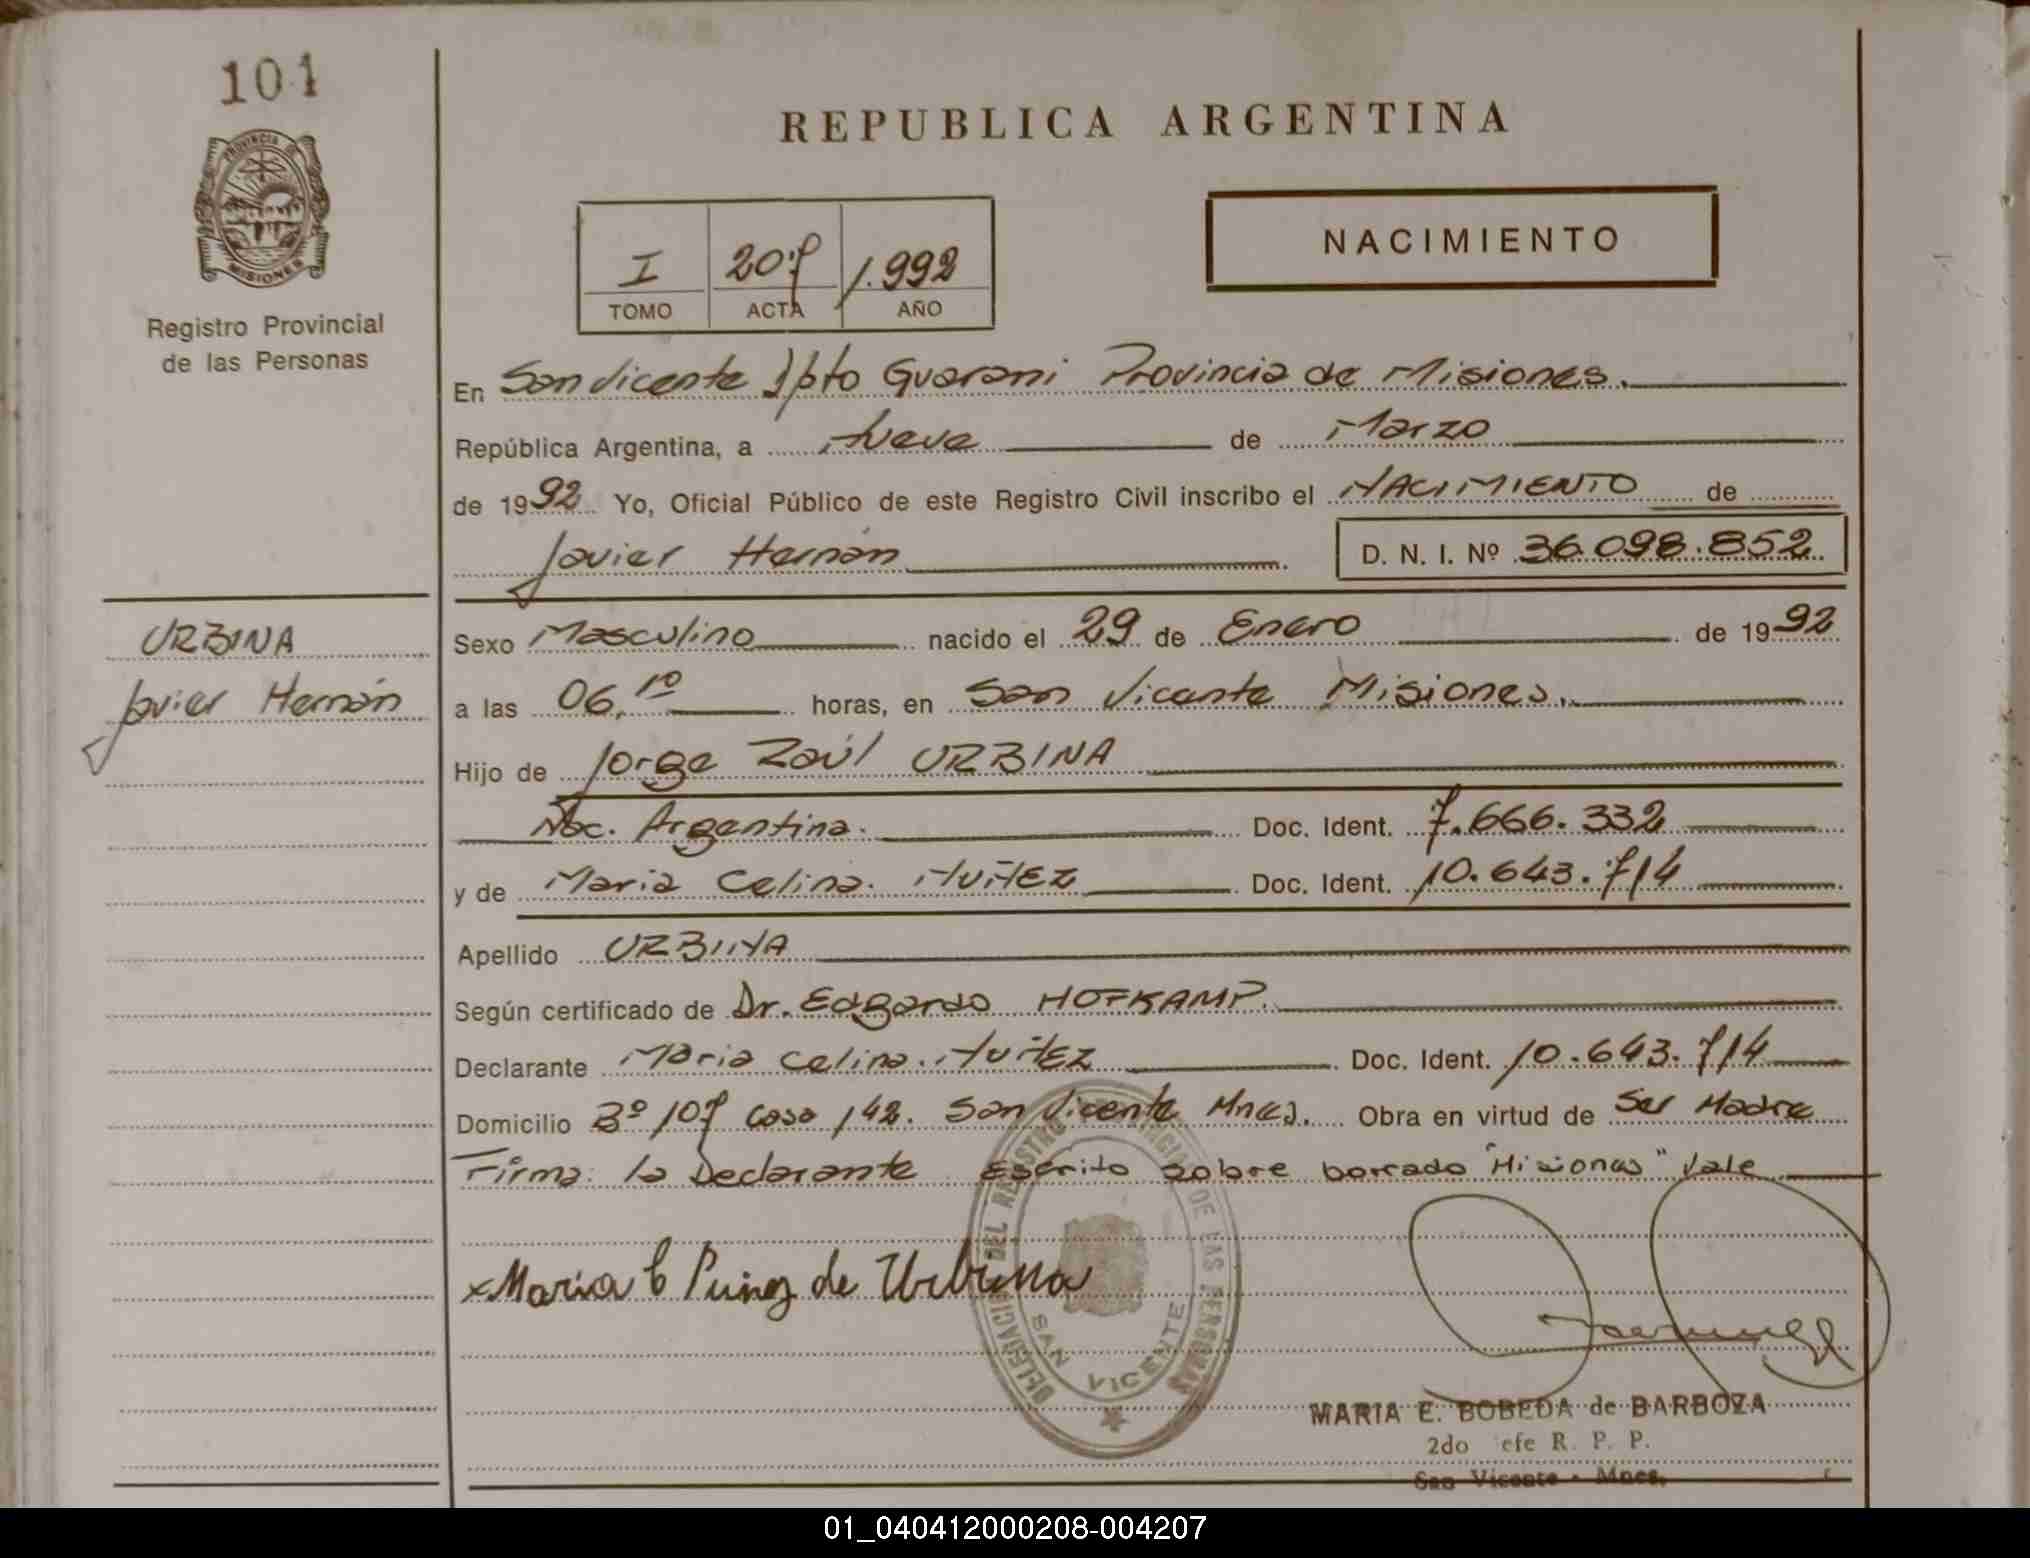 101
PROVINCIA DE
MISIONES
Registro Provincial
de las Personas
REPUBLICA ARGENTINA
I 207 1.992
TOMO ACTA AÑO
NACIMIENTO
En San Vicente Dpto Guarani Provincia de Misiones.
República Argentina, a Nueve de Marzo
de 1992 Yo, Oficial Público de este Registro Civil inscribo el NACIMIENTO de
Javier Hernán D. N. I. Nº 36.098.852
URBINA
Javier Hernán
Sexo Masculino nacido el 29 de Enero de 1992
a las 06,10 horas, en San Vicente Misiones.
Hijo de Jorge Raúl URBINA
Nac. Argentina. Doc. Ident. 7.666.332
y de Maria Celina. Doc. Ident. 10.643.714
Apellido URBINA
Según certificado de Dr. Edgardo HOFKAMP.
Declarante Maria Celina. Doc. Ident. 10.643.714
Domicilio Bº 107 Casa 142. San Vicente Mnes. Obra en virtud de Ser Madre
Firma: la Declarante Escrito sobre borrado "Misiones" Vale
x Maria C de Urbina
DELEGACION DEL REGISTRO PROVINCIAL DE LAS PERSONAS
SAN VICENTE
MARIA E. BOBEDA de BARBOZA
2do efe R. P. P.
San Vicente - Mnes.
01_040412000208-004207